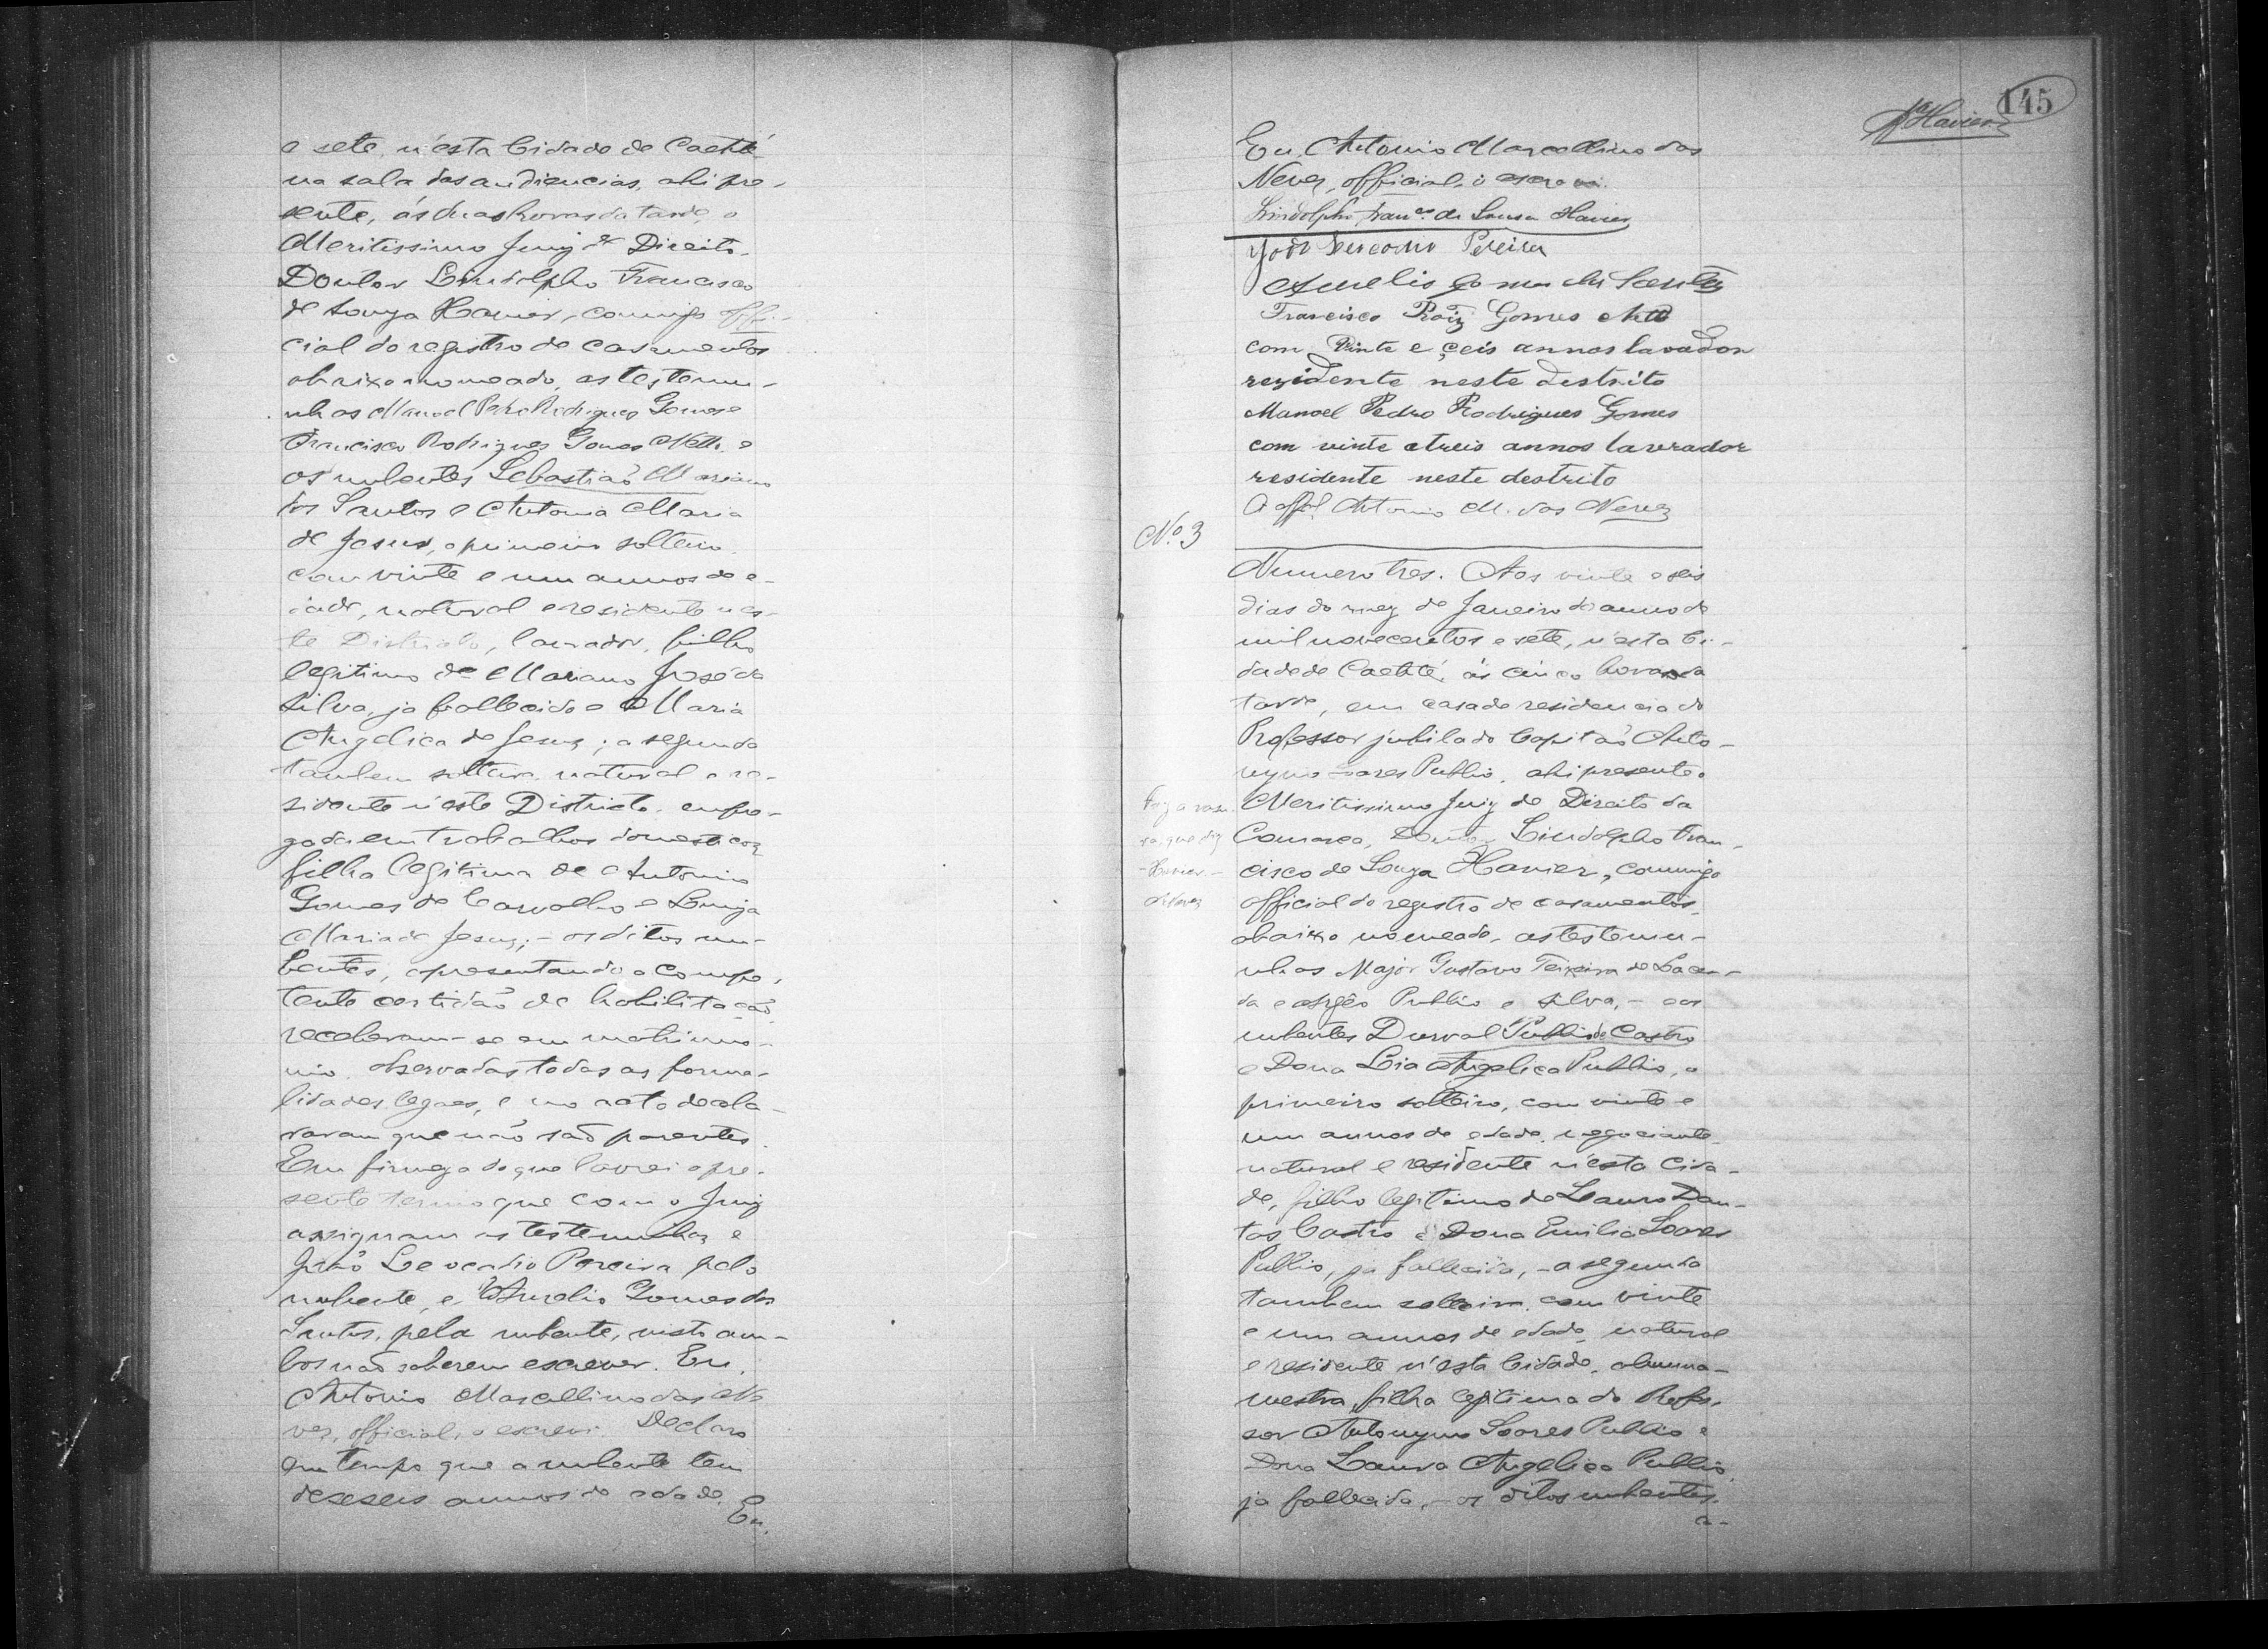 e sete, n'esta Cidade de Caetité
na sala das audiencias, ahi pre-
sente, ás duas horas da tarde, o
Meritissimo Juiz de Direito,
Doutor Lindolpho Francisco
de Souza Xavier, commigo offi-
cial do registro de casamentos
abaixo nomeado, as testemu-
nhas Manoel Pedro Rodrigues Gomes e
Francisco Rodrigues Gomes Netto e
os nubentes Sebastião Mariano
dos Santos e Antonia Maria
de Jesus, o primeiro solteiro,
com vinte e um annos de e-
dade, natural e residente nes-
te Districto, lavrador, filho
legitimo de Mariano José da
Silva, já fallecido e Maria
Angelica de Jesus; a segunda
tambem solteira, natural e re-
sidente n'este Districto, empre-
gada em trabalhos domesticos
filha legitima de Antonio
Gomes de Carvalho e Luiza
Maria de Jesus; - os ditos nu-
bentes, apresentando a compe-
tente certidão de habilitação,
receberam-se em matrimo-
nio, observadas todas as forma-
lidades legaes, e no acto decla-
raram que não são parentes.
Em firmeza do que lavrei o pre-
sente termo que com o Juiz
assignam as testemunhas e
João Leocadio Pereira pelo
nubente, e Aurelio Gomes dos
Santos, pela nubente, visto am-
bos não saberem escrever. Eu,
Antonio Marcellino das Ne-
ves, official, o escrevi. Declaro
em tempo que a nubente tem
deseseis annos de edade. Eu,
145
Xavier
Eu, Antonio Marcellino das
Neves, official, o escrevi.
Lindolpho Franco de Sousa Xavier
João Leocadio Pereira
Aurelio Gomes dos Santos
Francisco Roiz Gomes Netto
com Vinte e ceis annos lavador
rezidente neste destrito
Manoel Pedro Rodrigues Gomes
com vinte e treis annos laverador
residente neste destrito
O offal Antonio M. das Neves
No. 3
Numero tres. Aos vinte e seis
dias do mez de Janeiro do anno de
mil novecentos e sete, n'esta Ci-
dade de Caetité, ás cinco horas da
tarde, em casa de residencia do
Professor jubilado Capitão Anto-
nymo Soares Publio, ahi presente o
Meritissimo Juiz de Direito da
Comarca, Doutor Lindolpho Fran-
cisco de Souza Xavier, commigo
official do registro de casamentos,
abaixo nomeado, as testemu-
nhas Major Gustavo Teixeira de Lacer-
da e Argêo Publio e Silva, - e os
nubentes Durval Publio de Castro
e Dona Lia Angelica Publio, o
primeiro solteiro, com vinte e
um annos de edade, negociante,
natural e residente n'esta Cida-
de, filho legitimo de Lauro Dan-
tas Castro e Dona Emilia Soares
Publio, já fallecida, - a segunda
tambem solteira, com vinte
e um annos de edade, natural
e residente n'esta Cidade, alumna-
mestra, filha legitima do Profes-
sor Antonymo Soares Publio e
Dona Laura Angelica Publio,
já fallecida, - os ditos nubentes,
a-